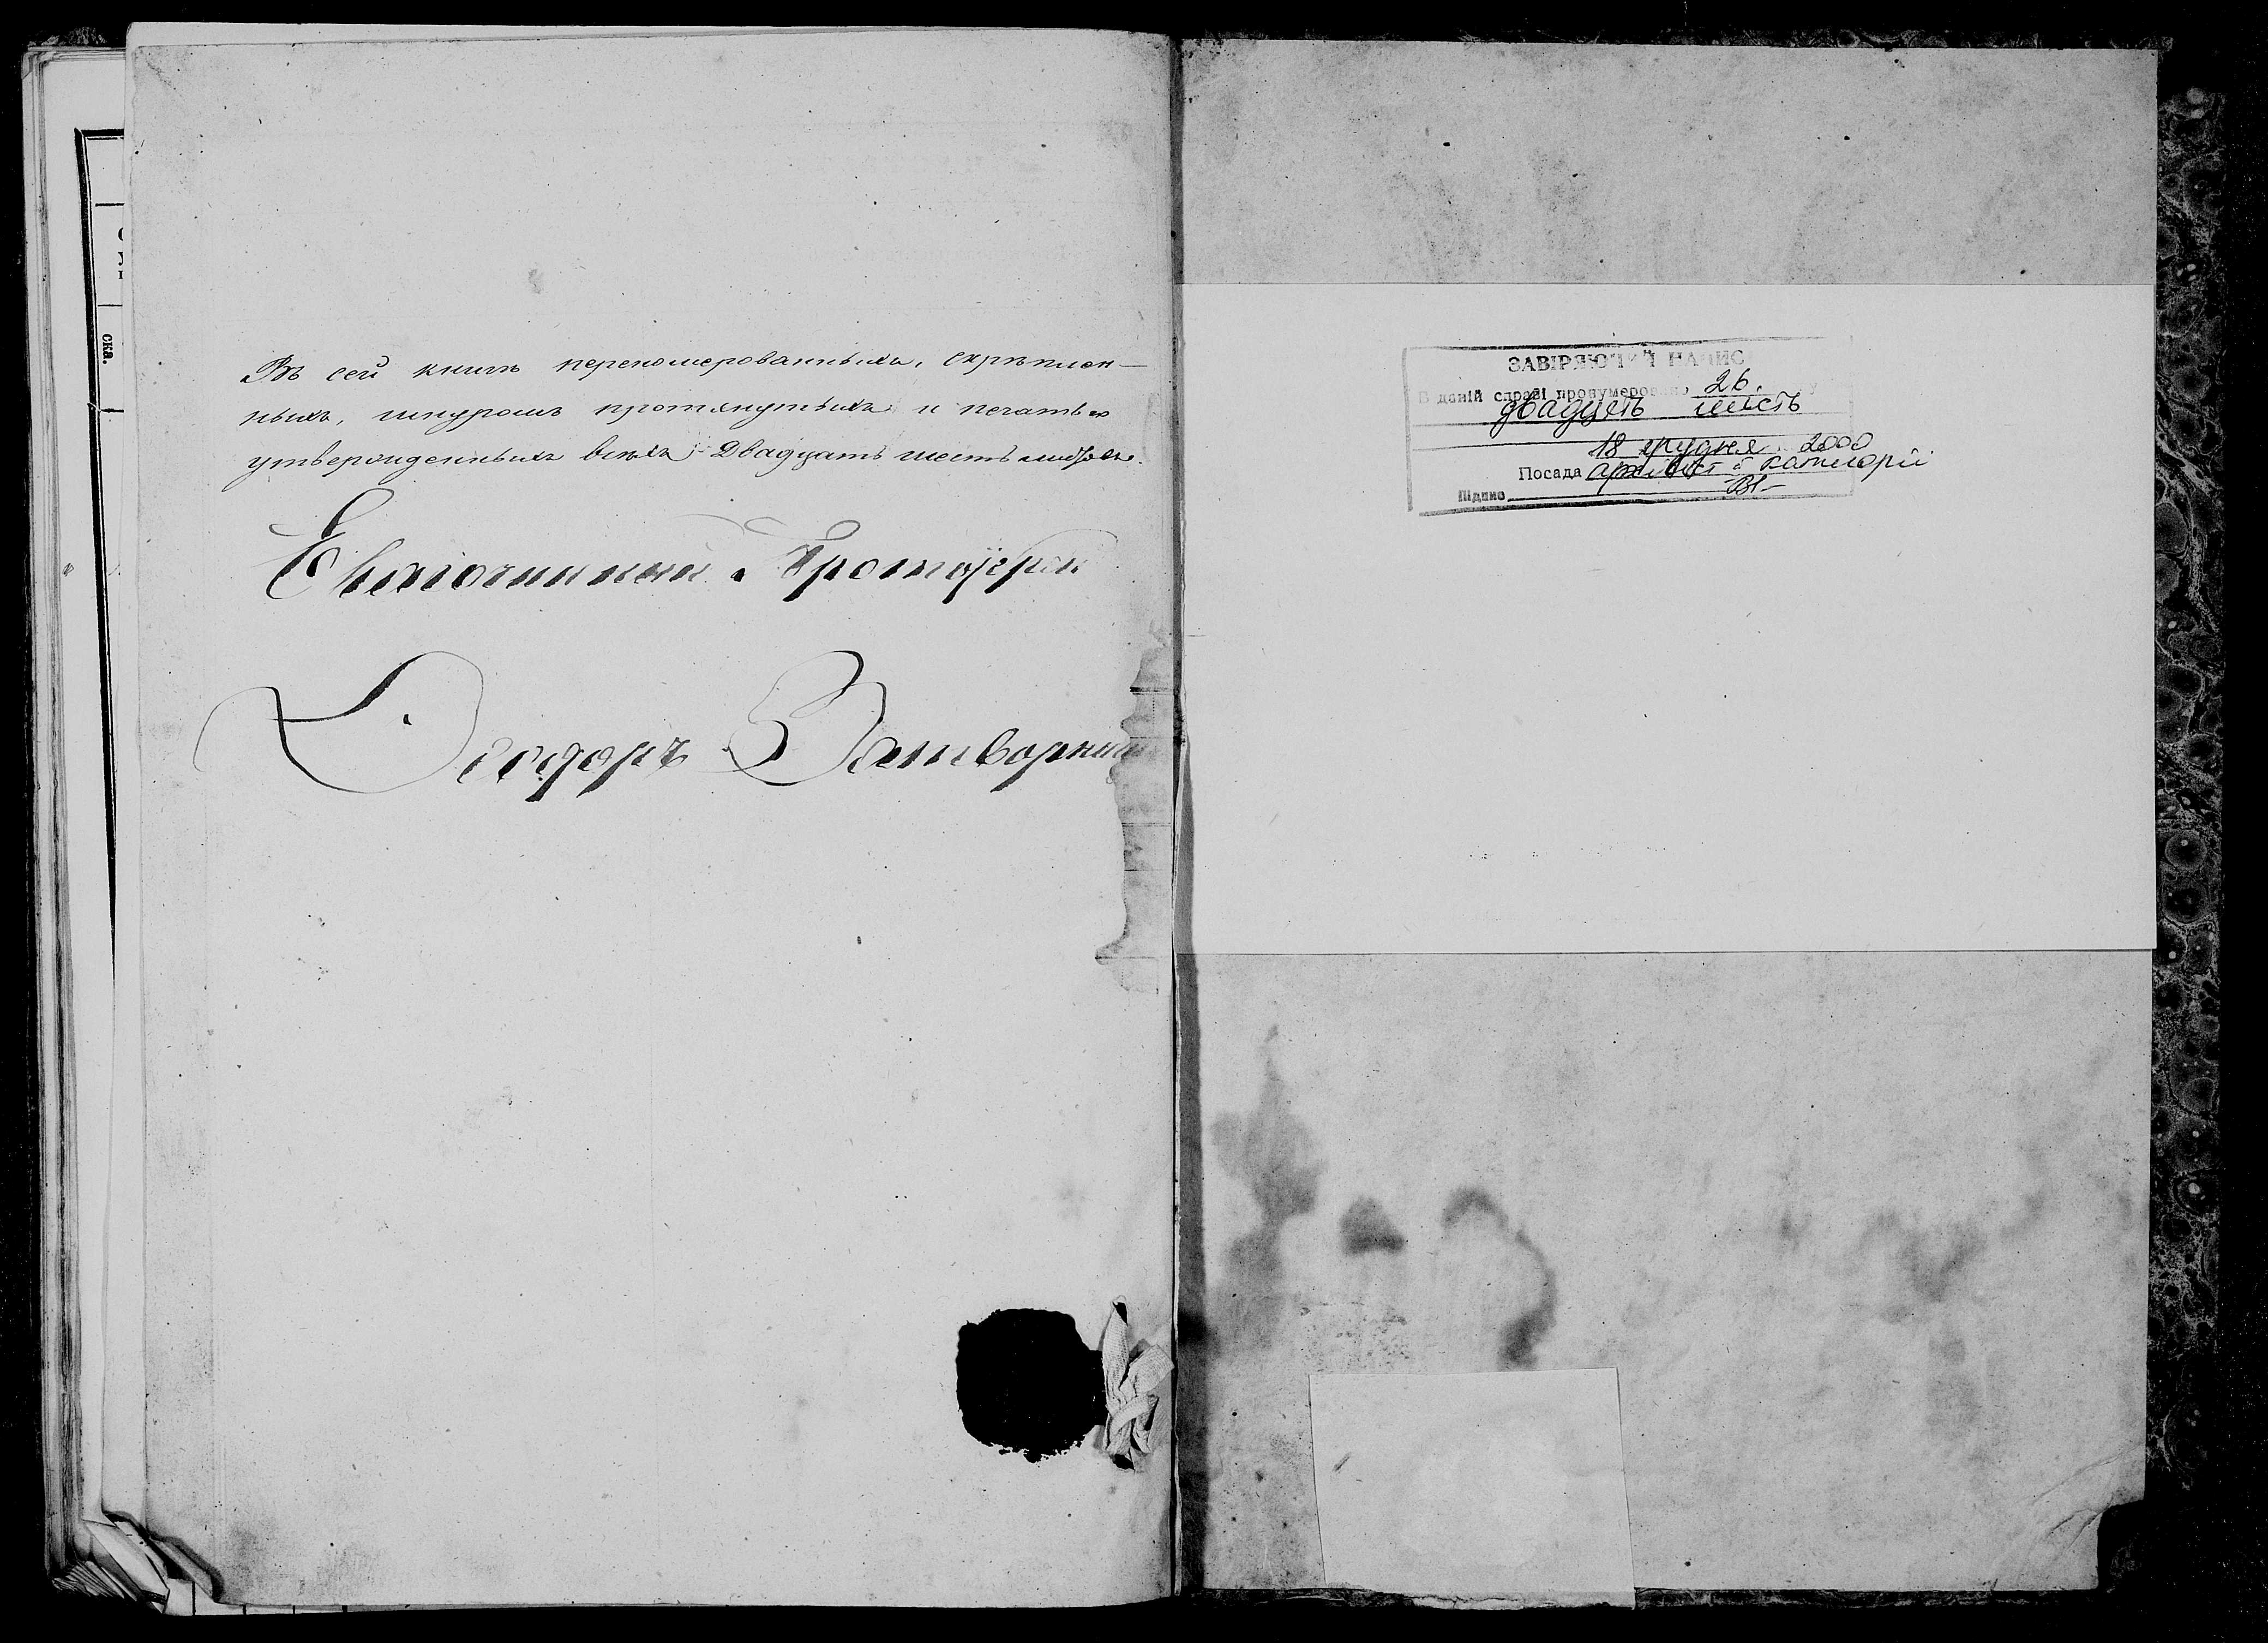 ска.
Въ сей книгѣ переномерованныхъ, скрѣплен-
ныхъ, шнуромъ протянутыхъ и печатью
утвержденныхъ всѣхъ Двадцать шесть листовъ.
Протоіерей
Ѳеодоръ
ЗАВІРЯЮЧИЙ НАПИС
В даній справі пронумеровано 26
двадцять шість
18 грудня 2000
Посада архівіст категорії
Підпис